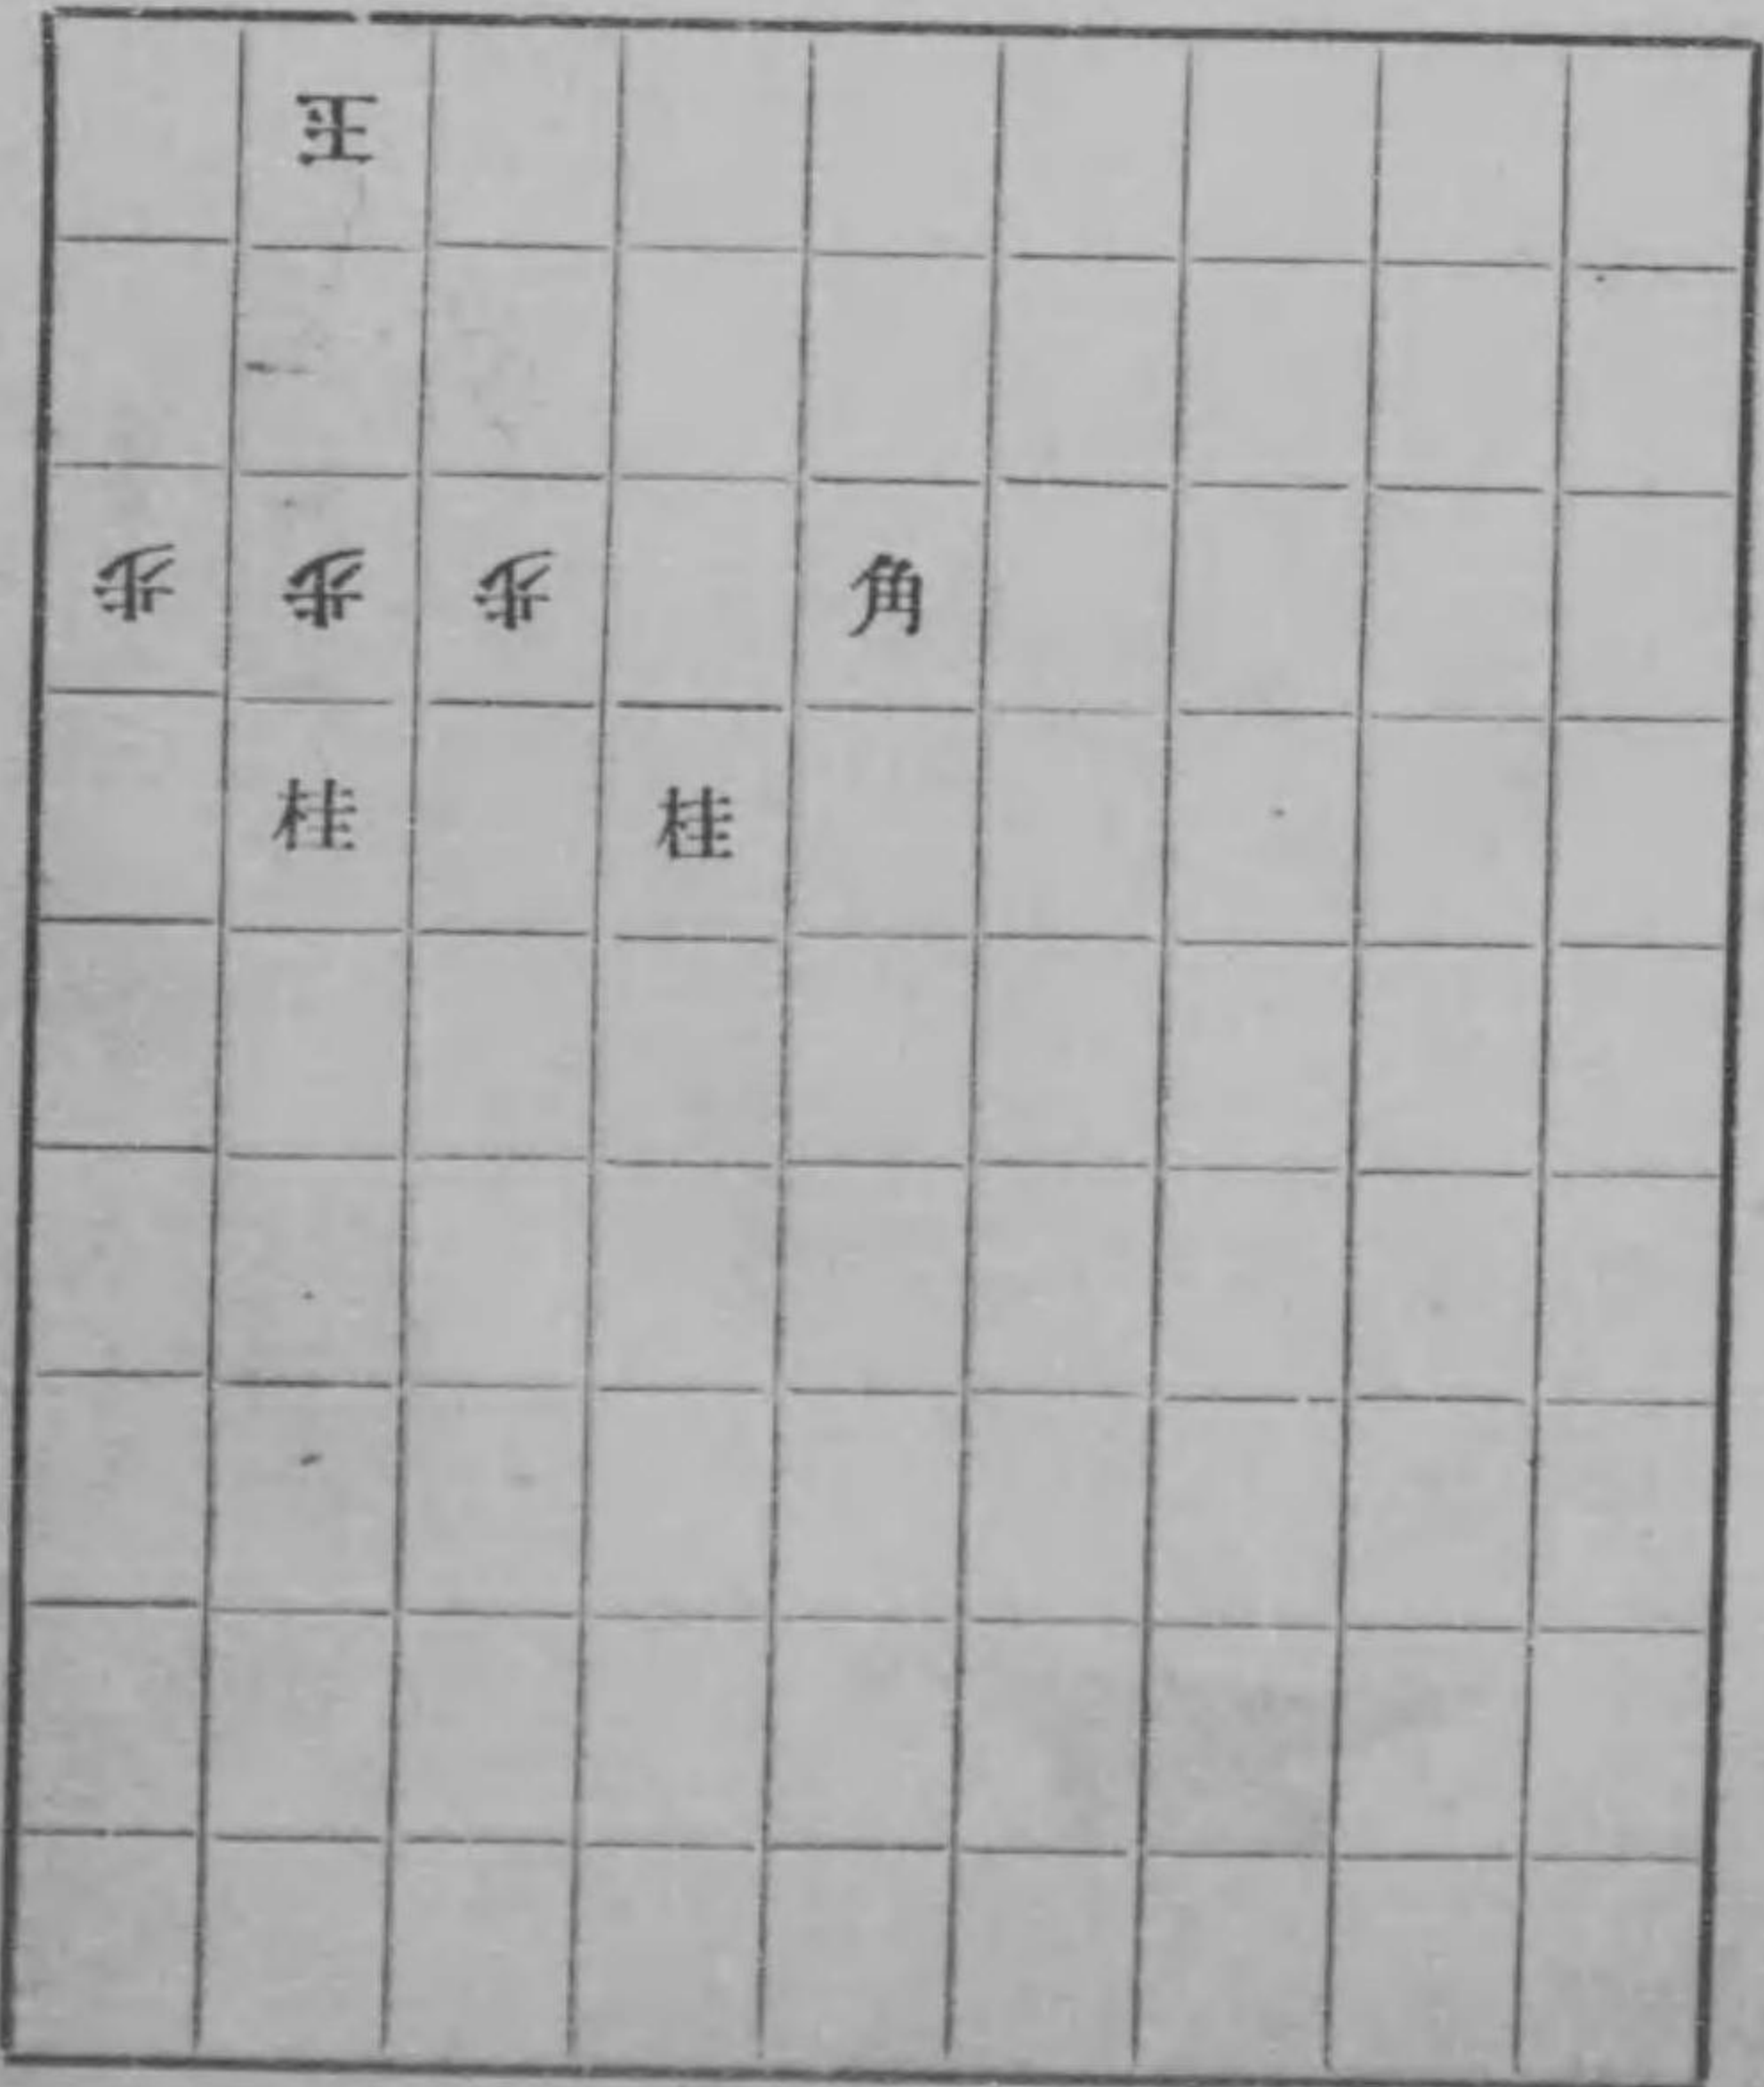 王
歩 歩 歩 角
桂 桂